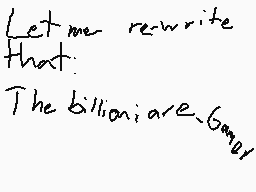 Let me re-write
that:
The billioniare-Gamer